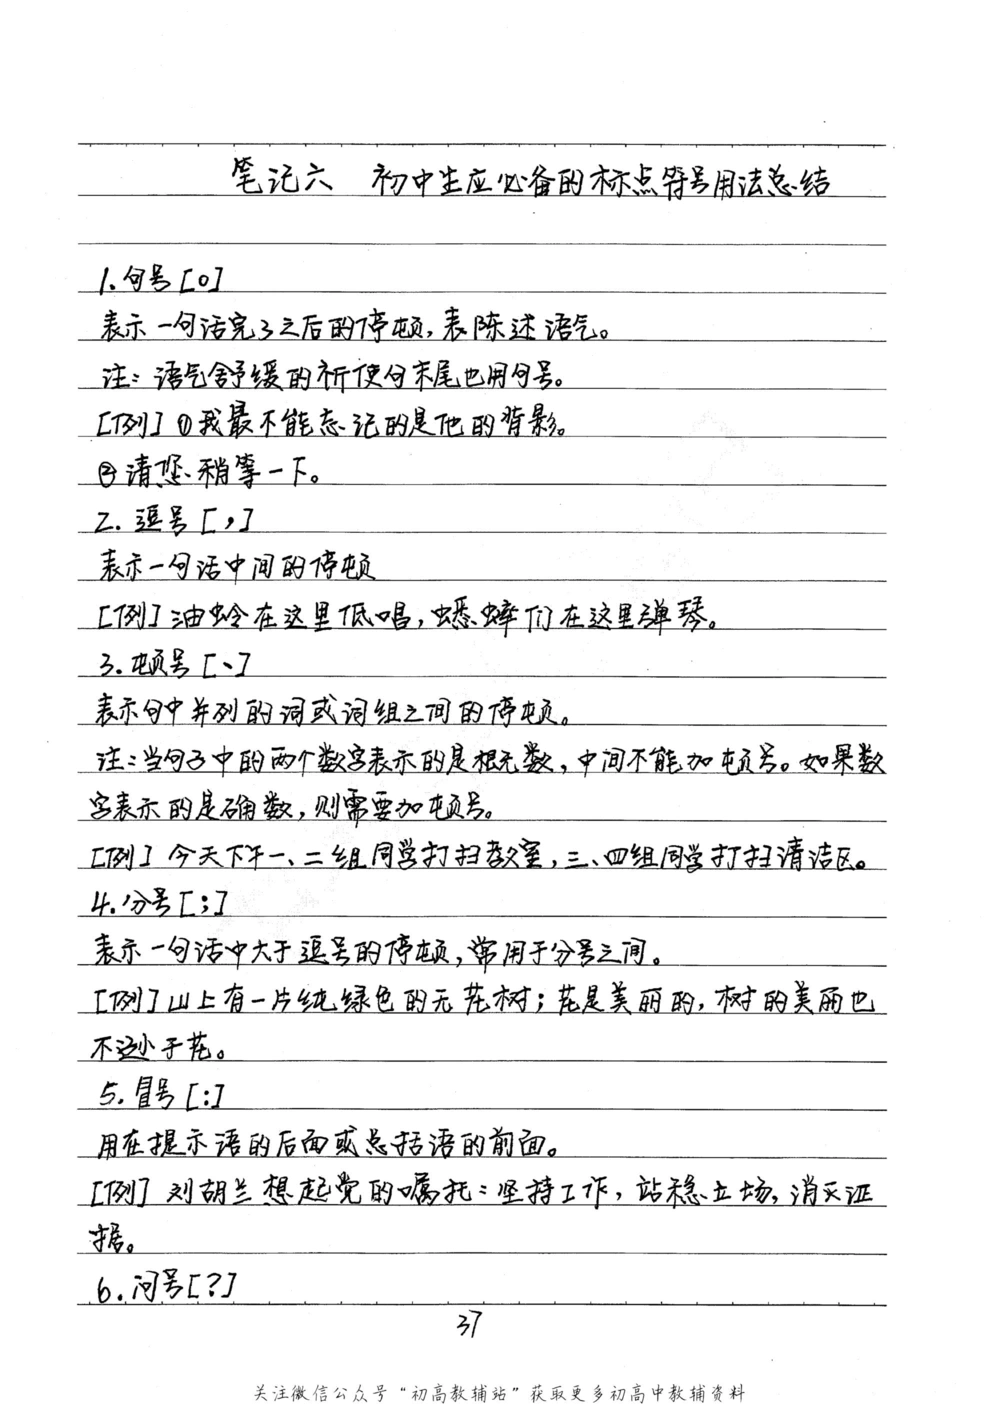 笔记六 初中生应必备的标点符号用法总结
1.句号[。]
表示一句话完了之后的停顿,表陈述语气。
注:语气舒缓的祈使句末尾也用句号。
[例]①我最不能忘记的是他的背影。
②请您稍等一下。
2.逗号[,]
表示一句话中间的停顿
[例]油蛉在这里低唱,蟋蟀们在这里弹琴。
3.顿号[、]
表示句中并列的词或词组之间的停顿。
注:当句子中的两个数字表示的是概数,中间不能加顿号。如果数
字表示的是确数,则需要加顿号。
[例]今天下午一、二组同学打扫教室,三、四组同学打扫清洁区。
4.分号[;]
表示一句话中大于逗号的停顿,常用于分号之间。
[例]山上有一片纯绿色的无花树;花是美丽的,树的美丽也
不逊于花。
5.冒号[:]
用在提示语的后面或总括语的前面。
[例]刘胡兰想起党的嘱托:坚持工作,站稳立场,消灭证
据。
6.问号[?]
37
关注微信公众号“初高教辅站”获取更多初高中教辅资料